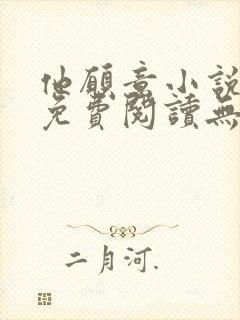 他願意小說
免費閱讀無
二月河.